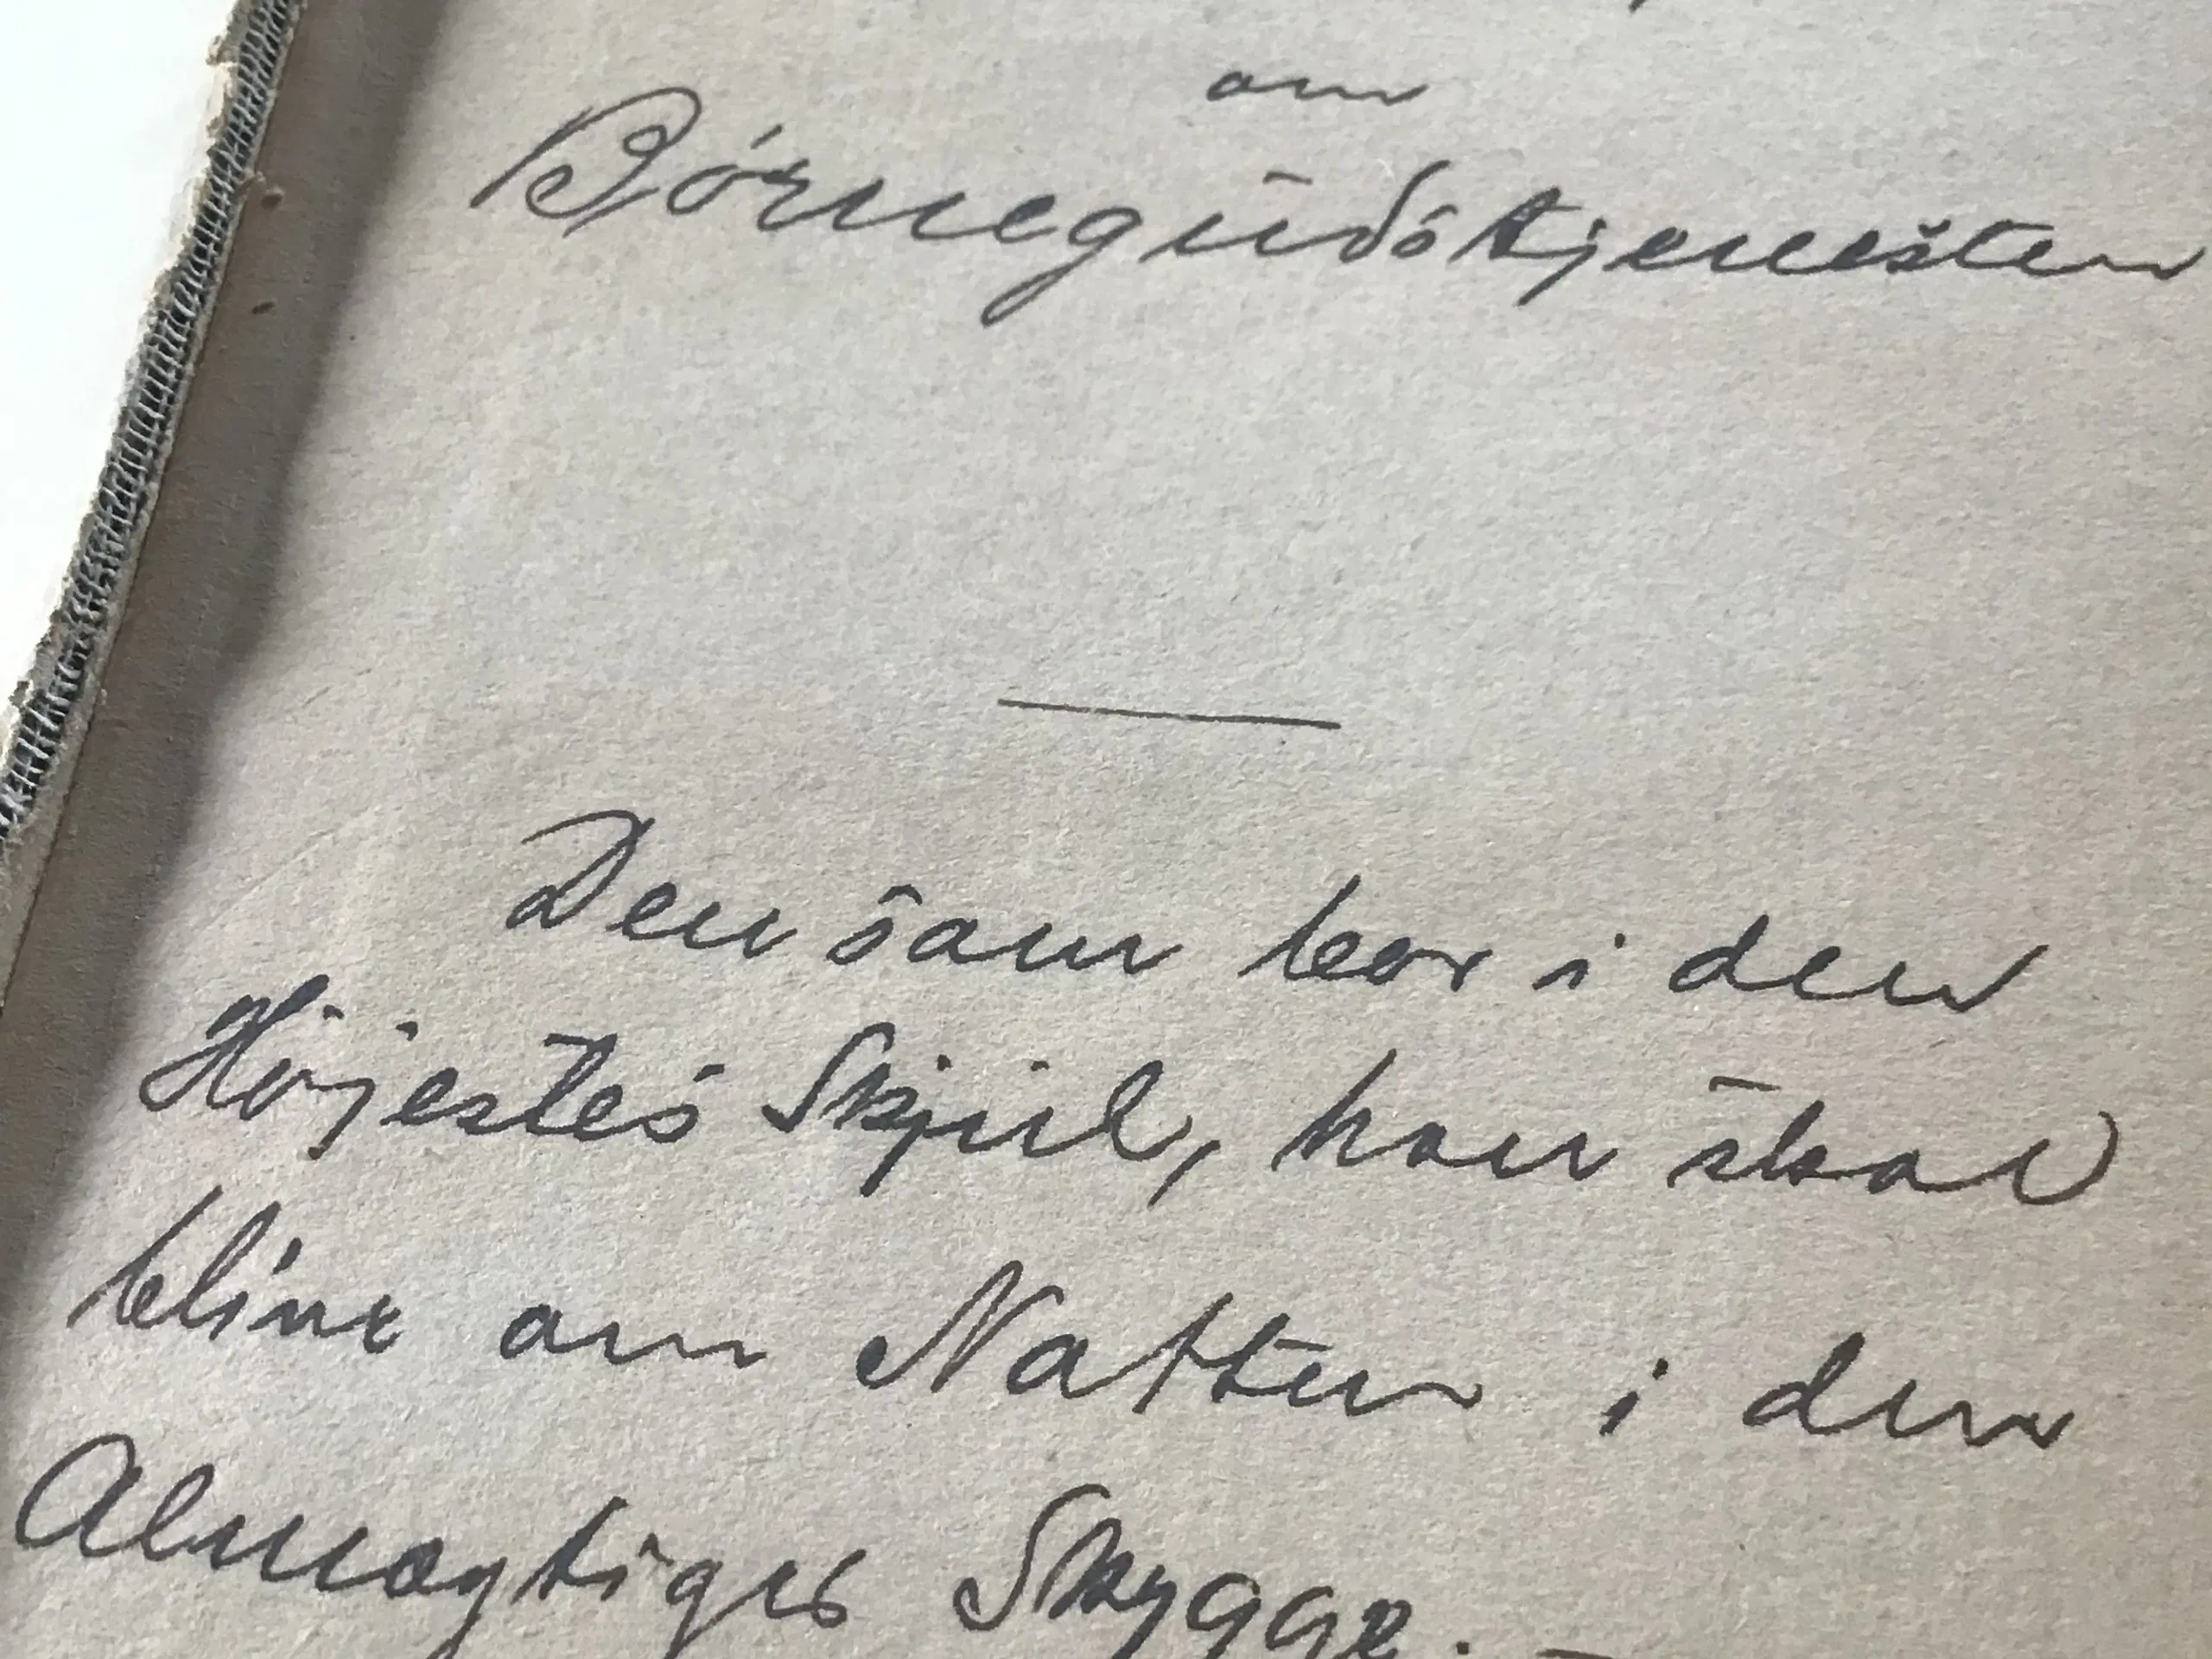 om
Børnegudstjenesten
Den som bor i den
Højestes Skjul, han skal
blive om Natten i den
Almægtiges Skygge. —